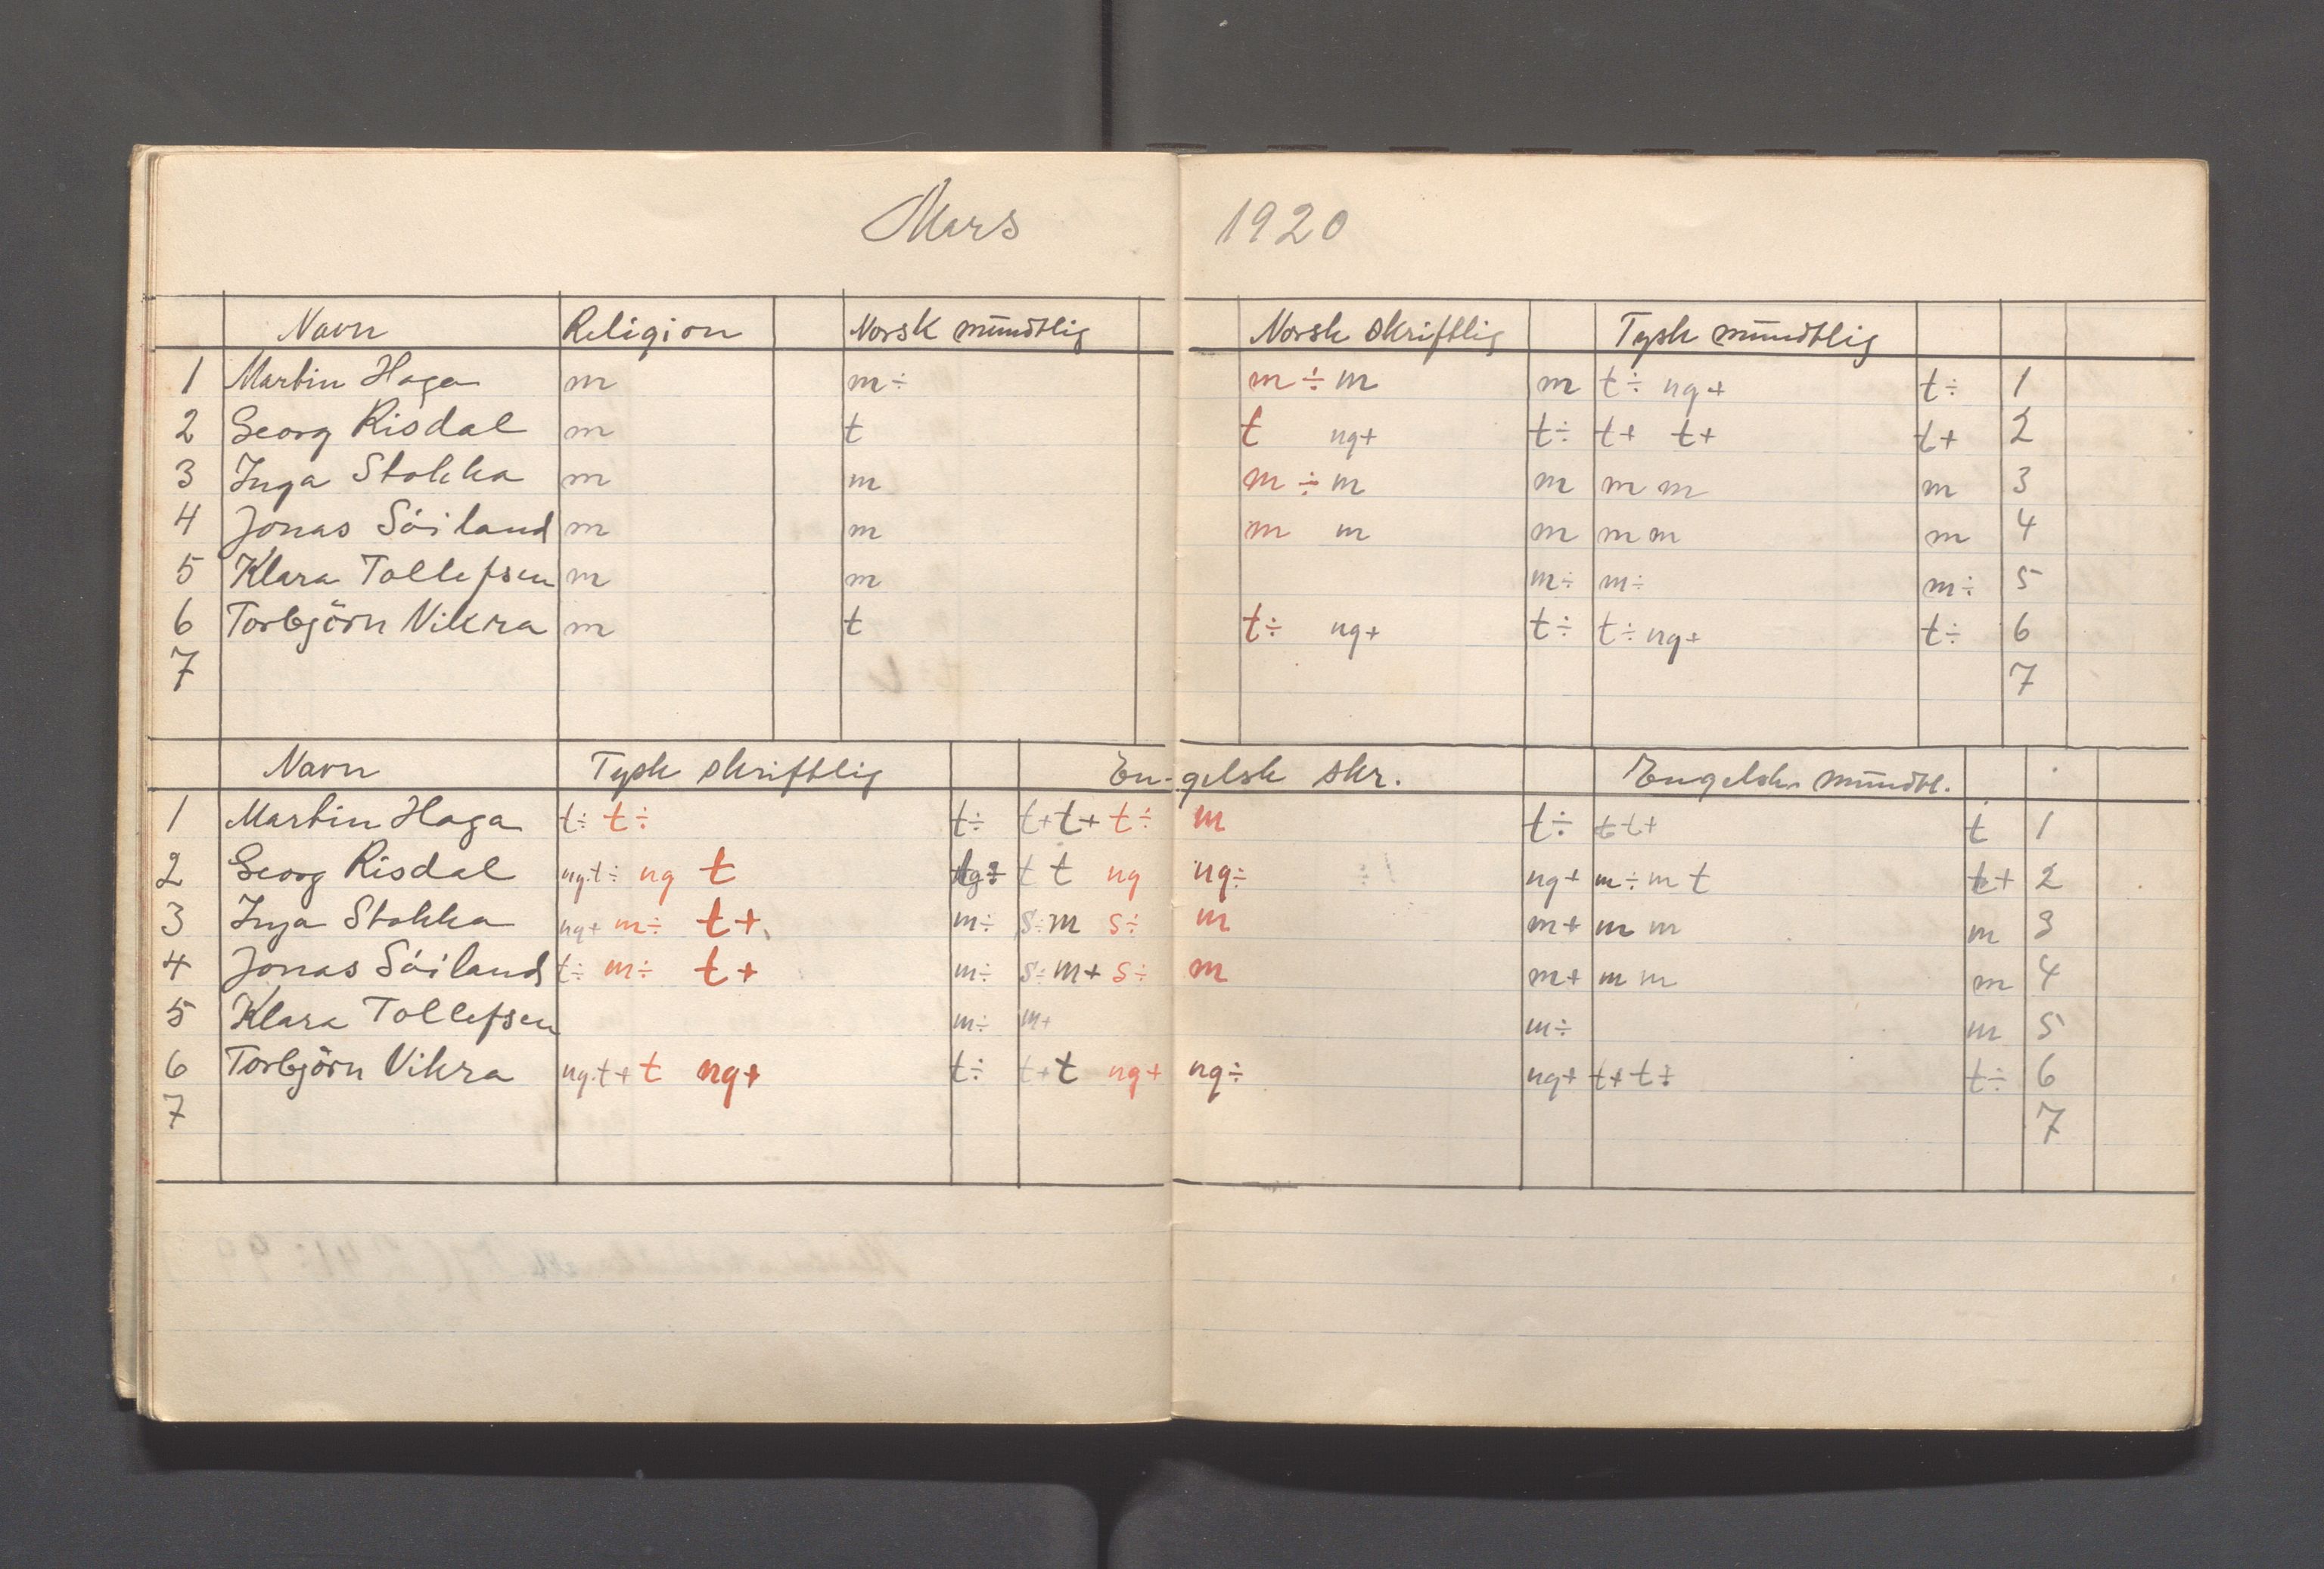 Mars 1920
Navn Religion Norsk mündtlig Norsk skriftlig Tysk mündtlig
1 Martin Haga m m÷ m÷ m m t÷ ng+ t÷ 1
2 Georg Risdal m t t ng+ t÷ t+ t+ t+ 2
3 Inga Stokka m m m÷ m m m m m 3
4 Jonas Söiland m m m m m m m m 4
5 Klara Tollefsen m m m÷ m÷ m÷ 5
6 Torbjörn Vikra m t t÷ ng+ t÷ t÷ ng+ t÷ 6
7 7
Navn Tysk skriftlig En-gelsk skr. Engelsk mündtl.
1 Martin Haga t÷ t÷ t÷ t+ t+ t÷ m t÷ t t+ t 1
2 Georg Risdal ng.t÷ ng t t t ng ng÷ ng+ m÷ m t t+ 2
3 Inga Stokka ng+ m÷ t+ m÷ s÷ m s÷ m m+ m m m 3
4 Jonas Söiland t÷ m÷ t+ m÷ s÷ m+ s÷ m m+ m m m 4
5 Klara Tollefsen m÷ m+ m÷ m 5
6 Torbjörn Vikra ng.t+ t ng+ t÷ t+ t ng+ ng÷ ng+ t+ t÷ t÷ 6
7 7